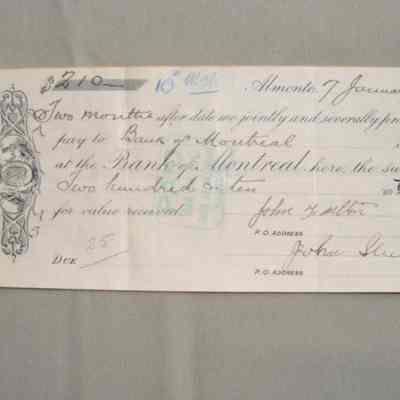 $210— 10th Mch Almonte, 7 Januar
Two months after date we jointly and severally pro
pay to Bank of Montreal
at the Bank of Montreal here, the su
Two hundred ten 00
for value received. John
P.O. ADDRESS
DUE 25 John
P.O. ADDRESS